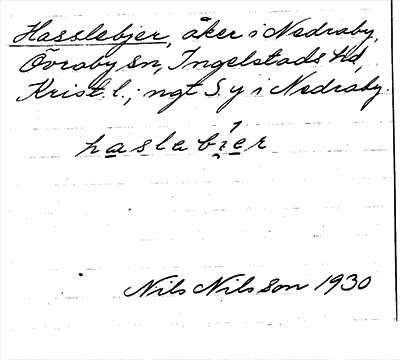 Hasslebjer, åker i Nedraby,
Övraby sn, Ingelstads hd,
Krist. l.; ngt S. y i Nedraby.
haslebier
Nils Nilsson 1930